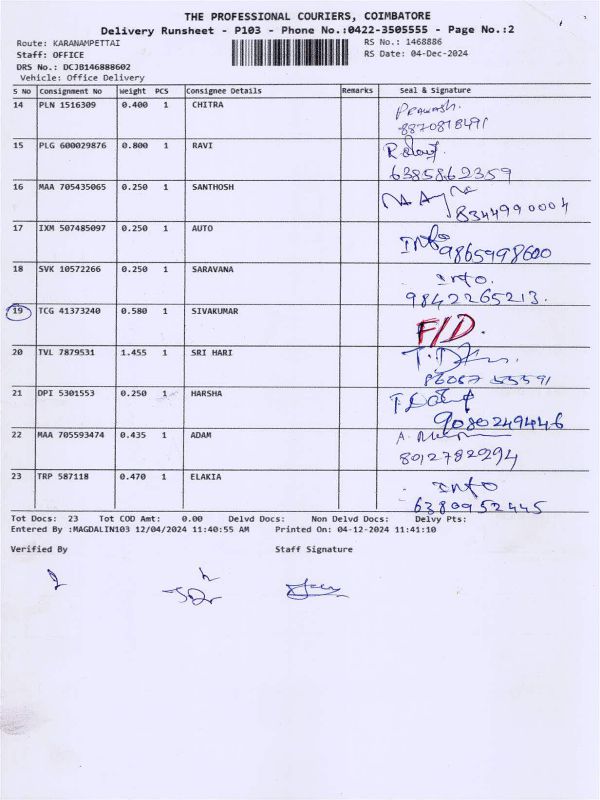 THE PROFESSIONAL COURIERS, COIMBATORE
Delivery Runsheet - P103 - Phone No.:0422-3505555 - Page No.:2
Route: KARANAMPETTAI RS No.: 1468886
Staff: OFFICE RS Date: 04-Dec-2024
DRS No.: DCJB146888602
Vehicle: Office Delivery
S No Consignment No Weight PCS Consignee Details Remarks Seal & Signature
14 PLN 1516309 0.400 1 CHITRA
8870818491
15 PLG 600029876 0.800 1 RAVI
6385862359
16 MAA 705435065 0.250 1 SANTHOSH
8344990004
17 IXM 507485097 0.250 1 AUTO
Info 9865998600
18 SVK 10572266 0.250 1 SARAVANA
Info.
9842265213.
19 TCG 41373240 0.580 1 SIVAKUMAR
F/D.
20 TVL 7879531 1.455 1 SRI HARI
21 DPI 5301553 0.250 1 HARSHA
9080249446
22 MAA 705593474 0.435 1 ADAM
8012782294
23 TRP 587118 0.470 1 ELAKIA
Info
6380952445
Tot Docs: 23 Tot COD Amt: 0.00 Delvd Docs: Non Delvd Docs: Delvy Pts:
Entered By :MAGDALIN103 12/04/2024 11:40:55 AM Printed On: 04-12-2024 11:41:10
Verified By Staff Signature